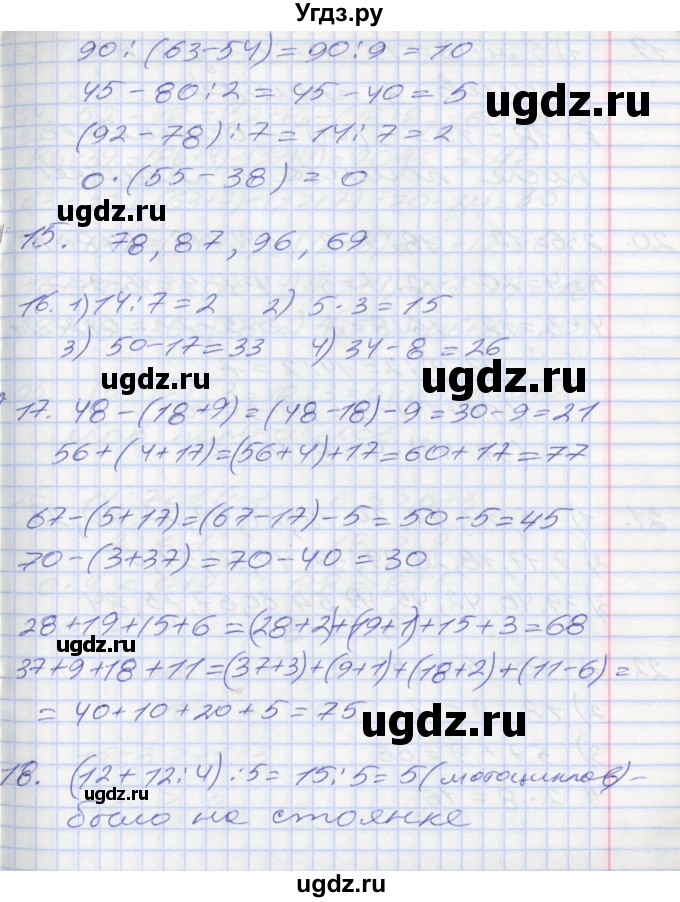 Угдз.ру
90:(63-54)=90:9=10
45-80:2=45-40=5
ugdz.ru
(92-78):7=14:7=2
0·(55-38)=0
ugdz.ru
15. 78, 87, 96, 69
ugdz.ru
16. 1) 14:7=2 2) 5·3=15
3) 50-17=33 4) 34-8=26
ugdz.ru
ugdz.ru
17. 48-(18+9)=(48-18)-9=30-9=21
56+(4+17)=(56+4)+17=60+17=77
ugdz.ru
67-(5+17)=(67-17)-5=50-5=45
70-(3+37)=70-40=30
ugdz.ru
28+19+15+6=(28+2)+(19+1)+15+3=68
37+9+18+11=(37+3)+(9+1)+(18+2)+(11-6)=
=40+10+20+5=75
ugdz.ru
ugdz.ru
18. (12+12:4):5=15:5=5(мотоциклов)-
было на стоянке
ugdz.ru
ugdz.ru